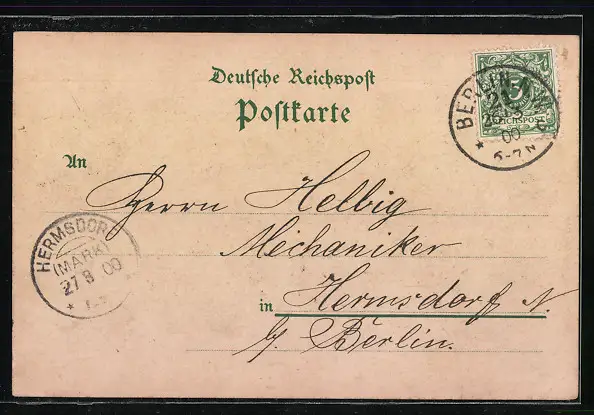 Deutsche Reichspost
Postkarte
An
Herrn Helbig
Mechaniker
in Hermsdorf N.
b/ Berlin.
HERMSDORF
(MARK)
27 8 00
BERLIN
00
6-7 N
5
REICHSPOST